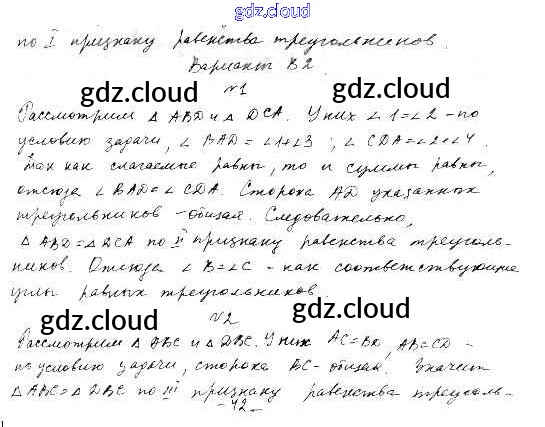 gdz.cloud
по I признаку равенства треугольников.
Вариант В2.
№1
gdz.cloud gdz.cloud
Рассмотрим △ ABD и △ DCA. У них ∠1=∠2 – по
условию задачи, ∠ BAD = ∠1+∠3 ; ∠ CDA=∠2+∠4.
Так как слагаемые равны, то и суммы равны,
отсюда ∠ BAD=∠ CDA. Сторона AD указанных
треугольников – общая. Следовательно,
△ ABD=△ DCA по II признаку равенства треуголь-
ников. Отсюда ∠ B=∠C – как соответствующие
углы равных треугольников.
gdz.cloud gdz.cloud
№2
Рассмотрим △ ABC и △ DBC. У них AC=BD, AB=CD –
по условию задачи, сторона BC – общая. Значит
△ABC=△ DBC по III признаку равенства треуголь-
-42-